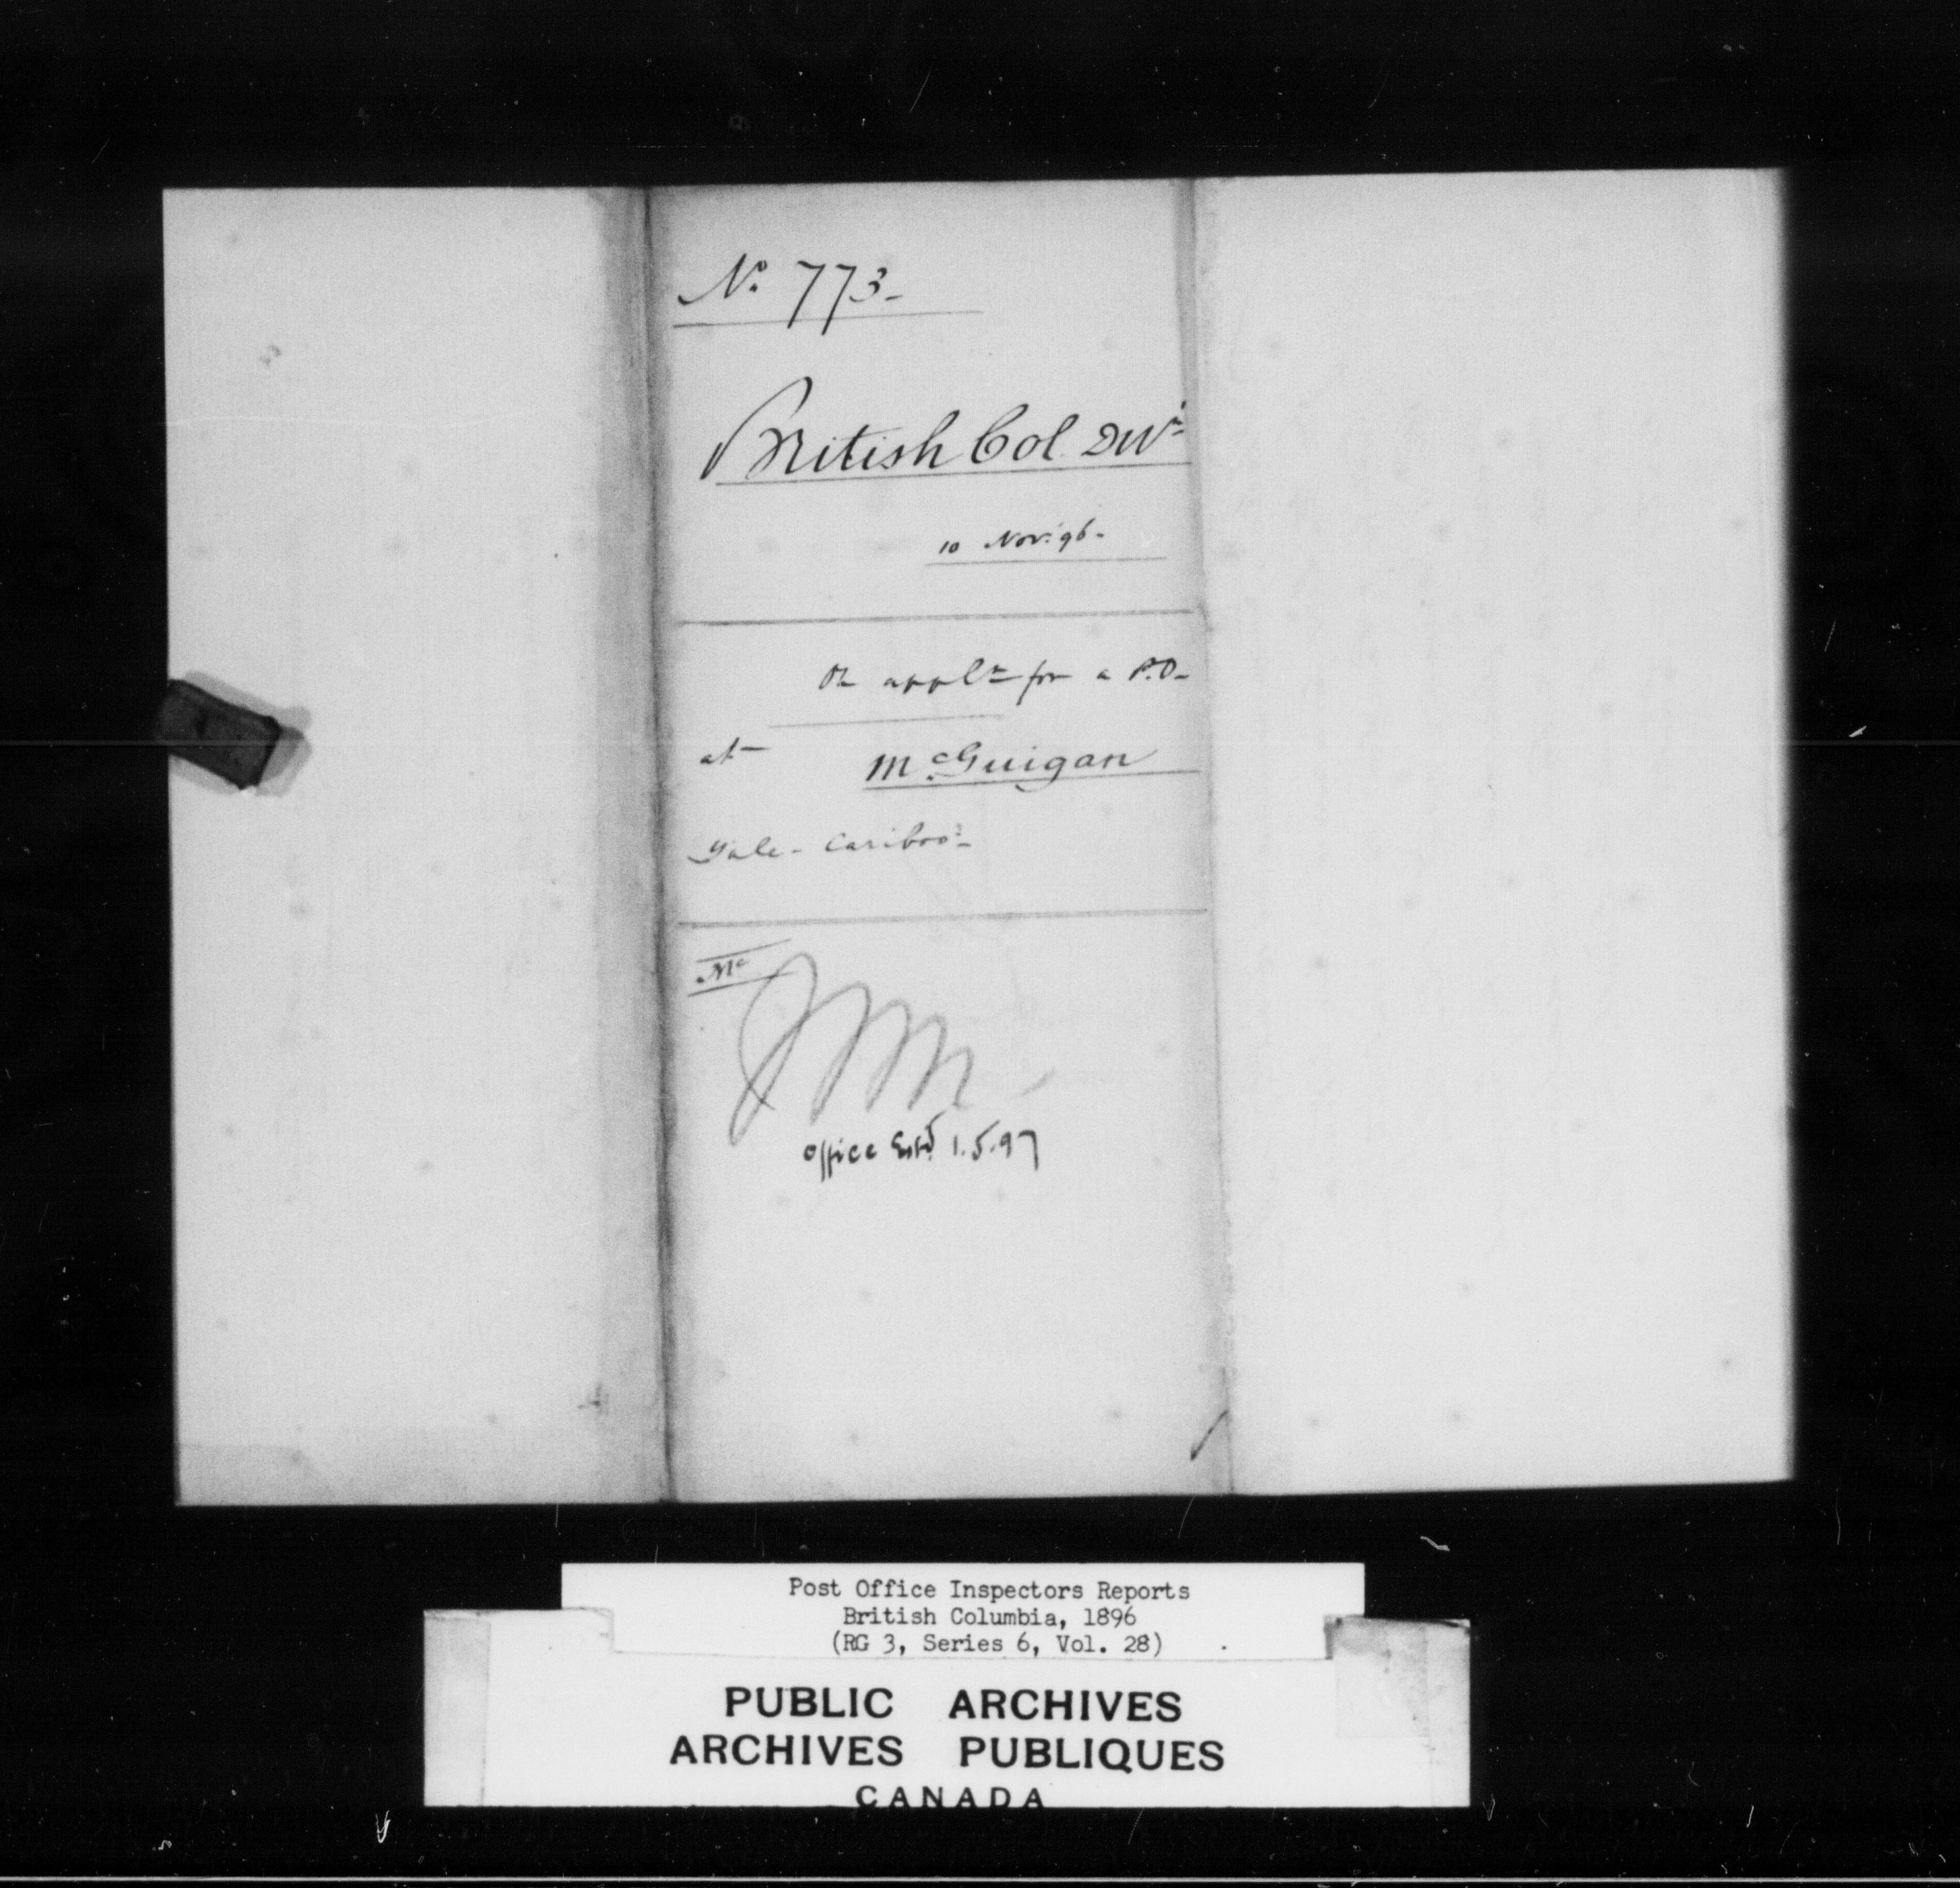 No. 773-
British Col Divn
10 Nov. 96.
On appln for a P.O.
at McGuigan
Yale-Cariboo-
Mc
Office Estd. 1.5.97
Post Office Inspectors Reports
British Columbia, 1896
(RG 3, Series 6, Vol. 28)
PUBLIC ARCHIVES
ARCHIVES PUBLIQUES
CANADA